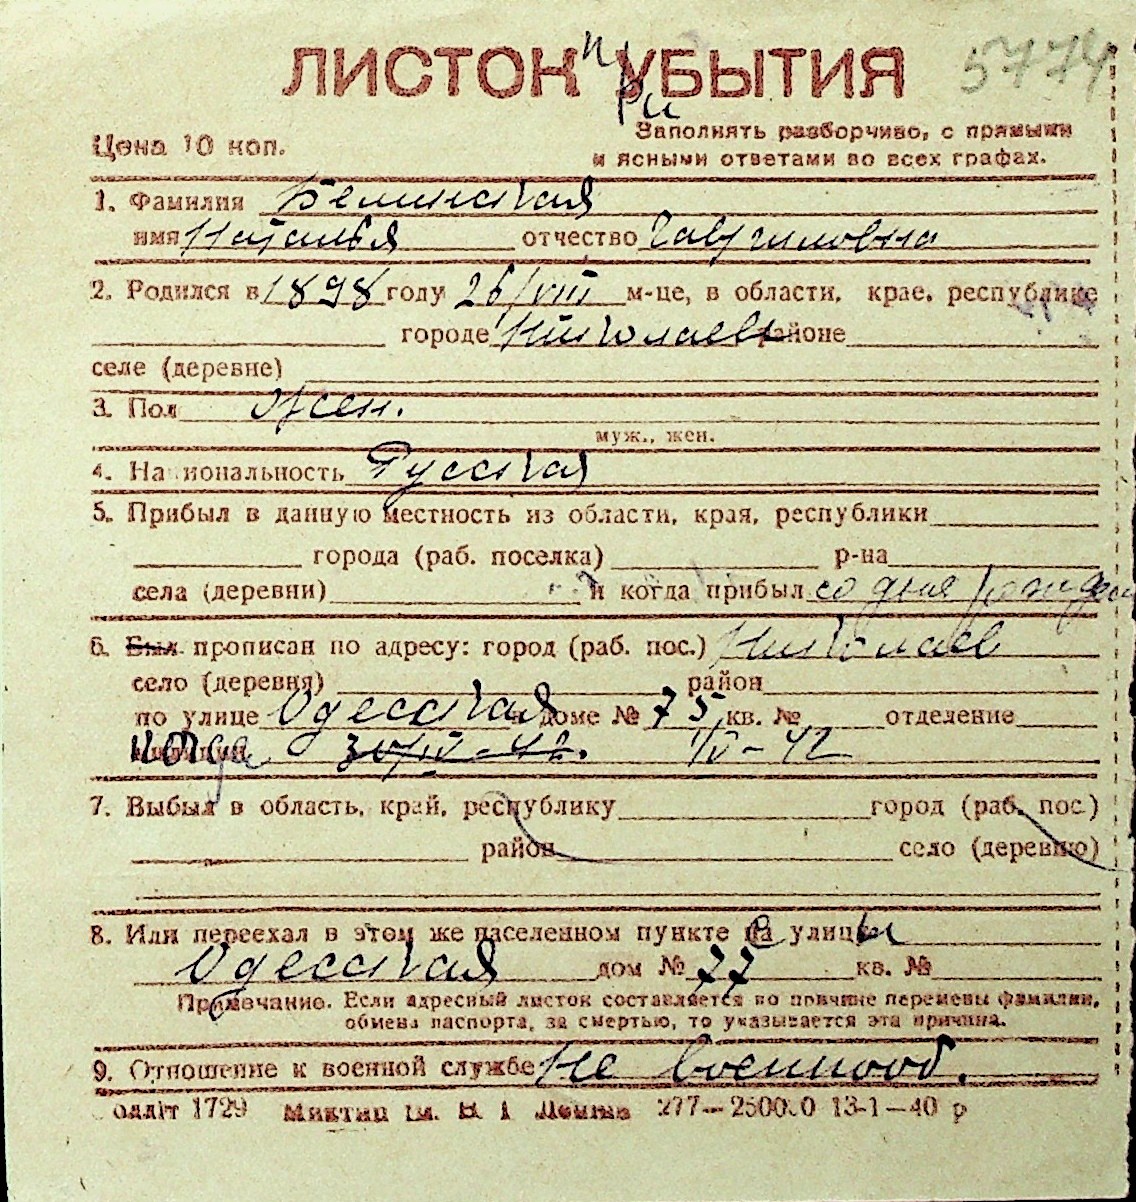 ЛИСТОК УБЫТИЯ
При
5774
Цена 10 коп.
Заполнять разборчиво, с прямыми
и ясными ответами во всех графах.
1. Фамилия Белинская
имя Наталья отчество Гавриловна
2. Родился в 1898 году 26/VIII м-це, в области, крае, республике
городе Николаев районе
селе (деревне)
3. Пол Жен.
муж., жен.
4. Национальность Русская
5. Прибыл в данную местность из области, края, республики
города (раб. поселка) р-на
села (деревни) и когда прибыл со дня рожден
6. Был прописан по адресу: город (раб. пос.) Николаев
село (деревня) район
по улице Одесская доме № 75 кв. № отделение
когда 30/IV-42. 1/V-42
7. Выбыл в область, край, республику город (раб. пос.)
район село (деревню)
8. Или переехал в этом же населенном пункте с улицы
Одесская дом № 77 кв. №
Примечание. Если адресный листок составляется по причине перемены фамилии,
обмена паспорта, за смертью, то указывается эта причина.
9. Отношение к военной службе Не военнооб.
1729 им. 277—250000 13-1—40 р